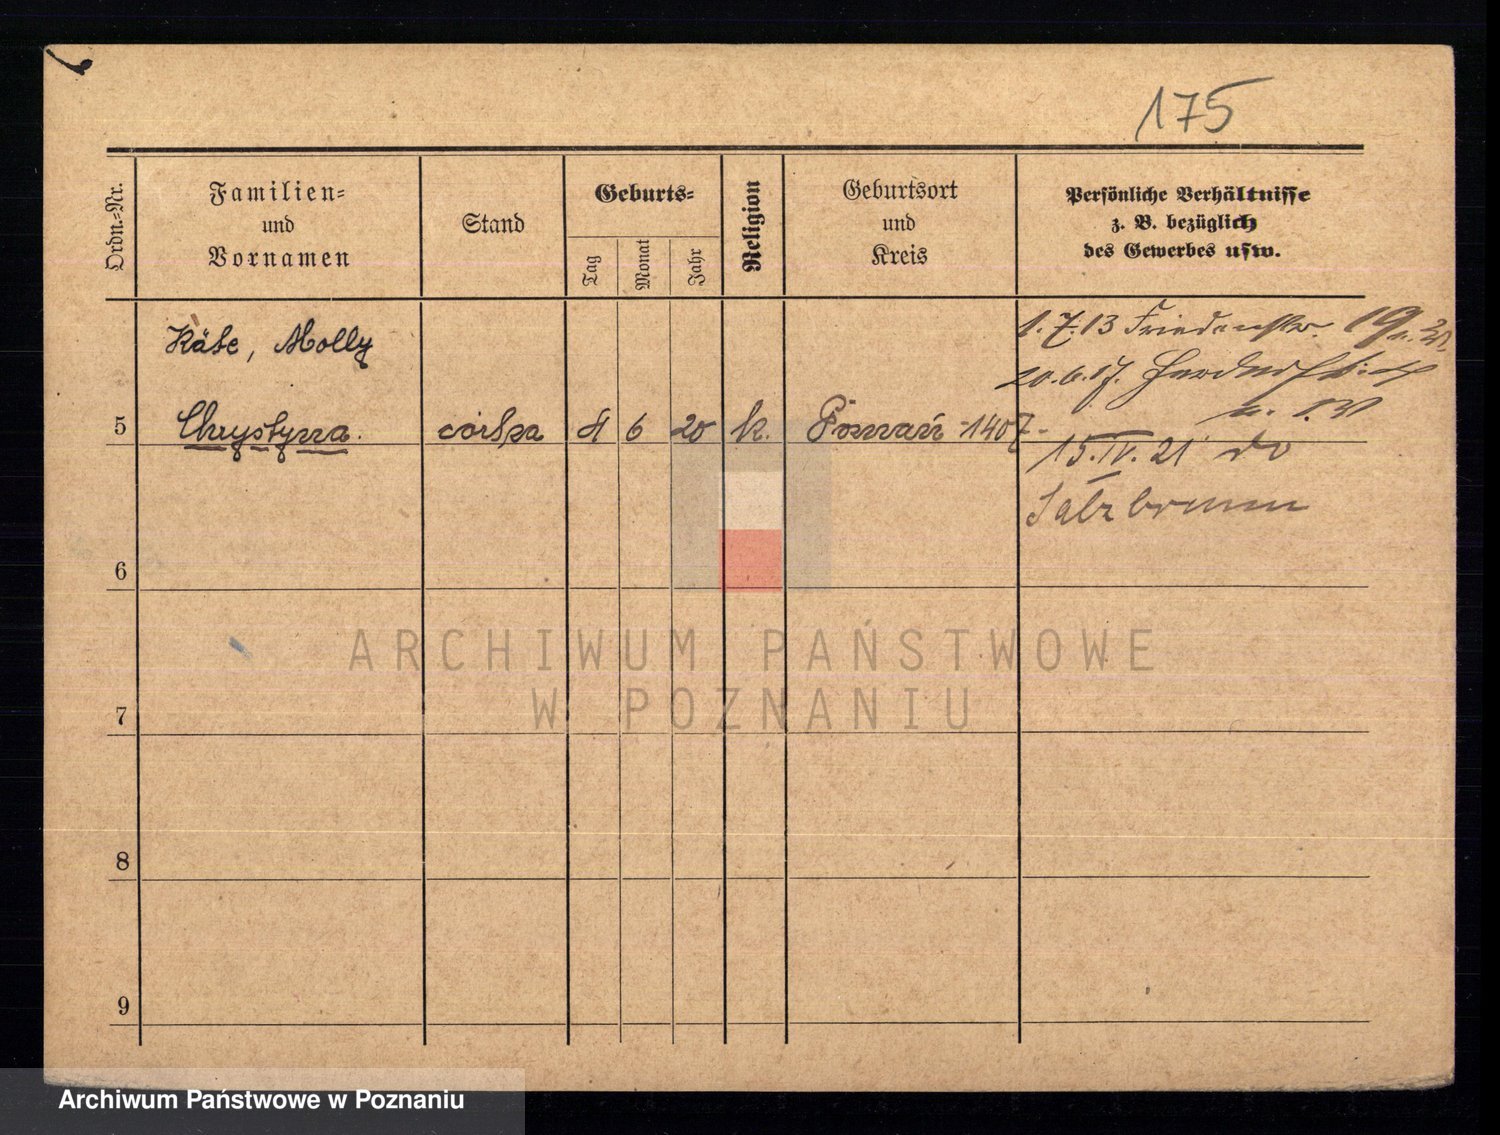 175
Ordn.-Nr.
Familien-
und
Vornamen
Stand
Geburts-
Tag
Monat
Jahr
Religion
Geburtsort
und
Kreis
Persönliche Verhältnisse
z. B. bezüglich
des Gewerbes usw.
Käte, Molly
1. 7. 13 Friedenstr. 19
20. 6. 17.
5 Chrystyna. córka 6 20 k. Poznań 1407
15. IV. 21 do
Salzbrunn
6
7
8
9
ARCHIWUM PAŃSTWOWE
W POZNANIU
Archiwum Państwowe w Poznaniu